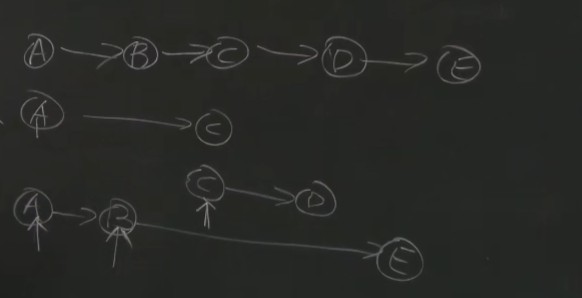 A B C D E
A C
C D
A B
E